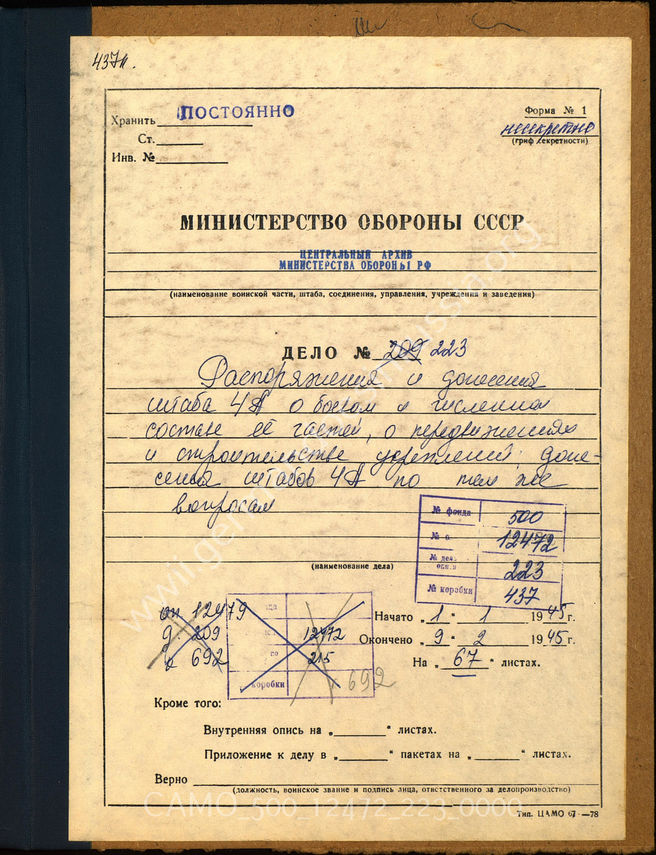 437м.
Хранить ПОСТОЯННО
Ст.
Инв. №
Форма № 1
несекретно
(гриф секретности)
МИНИСТЕРСТВО ОБОРОНЫ СССР
ЦЕНТРАЛЬНЫЙ АРХИВ
МИНИСТЕРСТВА ОБОРОНЫ РФ
(наименование воинской части, штаба, соединения, управления, учреждения и заведения)
ДЕЛО № 209 223
Распоряжения и донесения
штаба 4А о боевом и численном
составе её частей, о передвижениях
и строительстве укреплений; доне-
сения штабов 4А по тем же
вопросам
(наименование дела)
№ фонда 500
№ о. 12472
№ дел. опи.и 223
№ коробки 437
оп 12479
д 209
к 692
12472
по 215
коробки 692
Начато „1“ 1 1945 г.
Окончено „9“ 2 1945 г.
На „67“ листах.
Кроме того:
Внутренняя опись на „ “ листах.
Приложение к делу в „ “ пакетах на „ “ листах.
Верно
(должность, воинское звание и подпись лица, ответственного за делопроизводство)
Тип. ЦАМО 67—78
CAMO_500_12472_223_0000